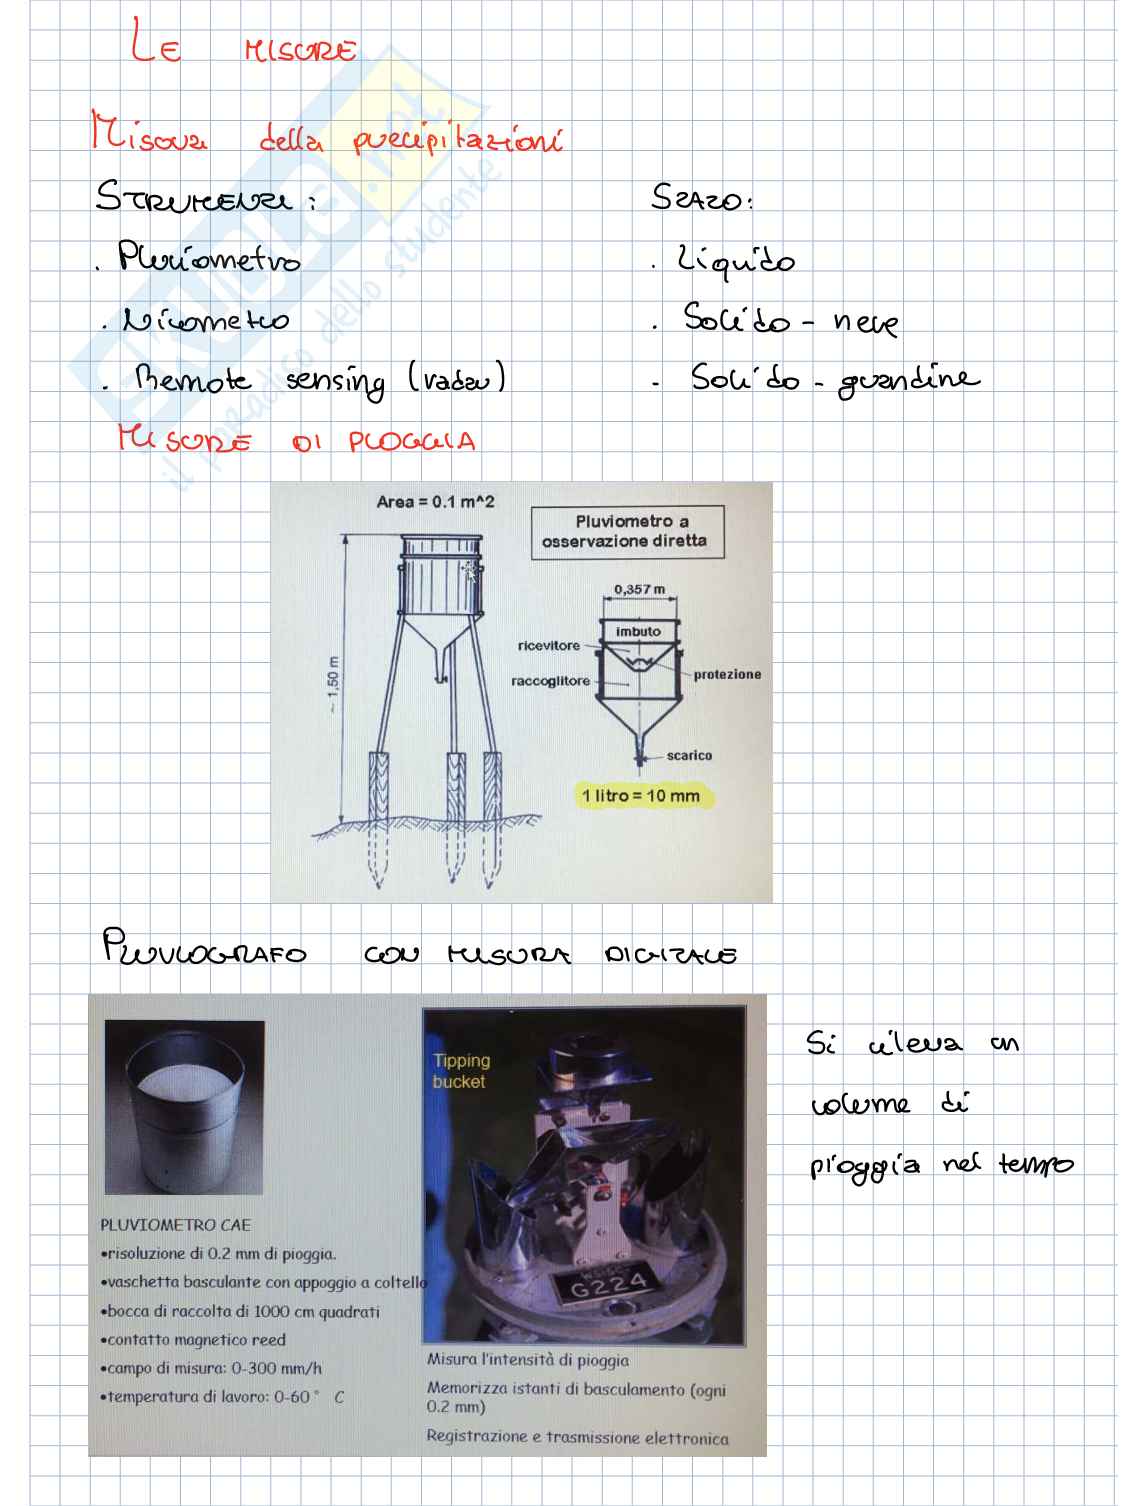 LE MISURE
Misura della precipitazioni
STRUMENTI:
. Pluviometro
. Nivometro
. Remote sensing (radar)
STATO:
. Liquido
. Solido - neve
- Solido - grandine
MISURE DI PIOGGIA
Area = 0.1 m^2
Pluviometro a
osservazione diretta
0,357 m
imbuto
ricevitore
raccoglitore
protezione
~ 1,50 m
scarico
1 litro = 10 mm
PLUVIOGRAFO CON MISURA DIGITALE
Tipping
bucket
G224
PLUVIOMETRO CAE
•risoluzione di 0.2 mm di pioggia.
•vaschetta basculante con appoggio a coltello
•bocca di raccolta di 1000 cm quadrati
•contatto magnetico reed
•campo di misura: 0-300 mm/h
•temperatura di lavoro: 0-60° C
Misura l'intensità di pioggia
Memorizza istanti di basculamento (ogni
0.2 mm)
Registrazione e trasmissione elettronica
Si rileva un
volume di
pioggia nel tempo
SKUOLA.net
il paradiso dello studente